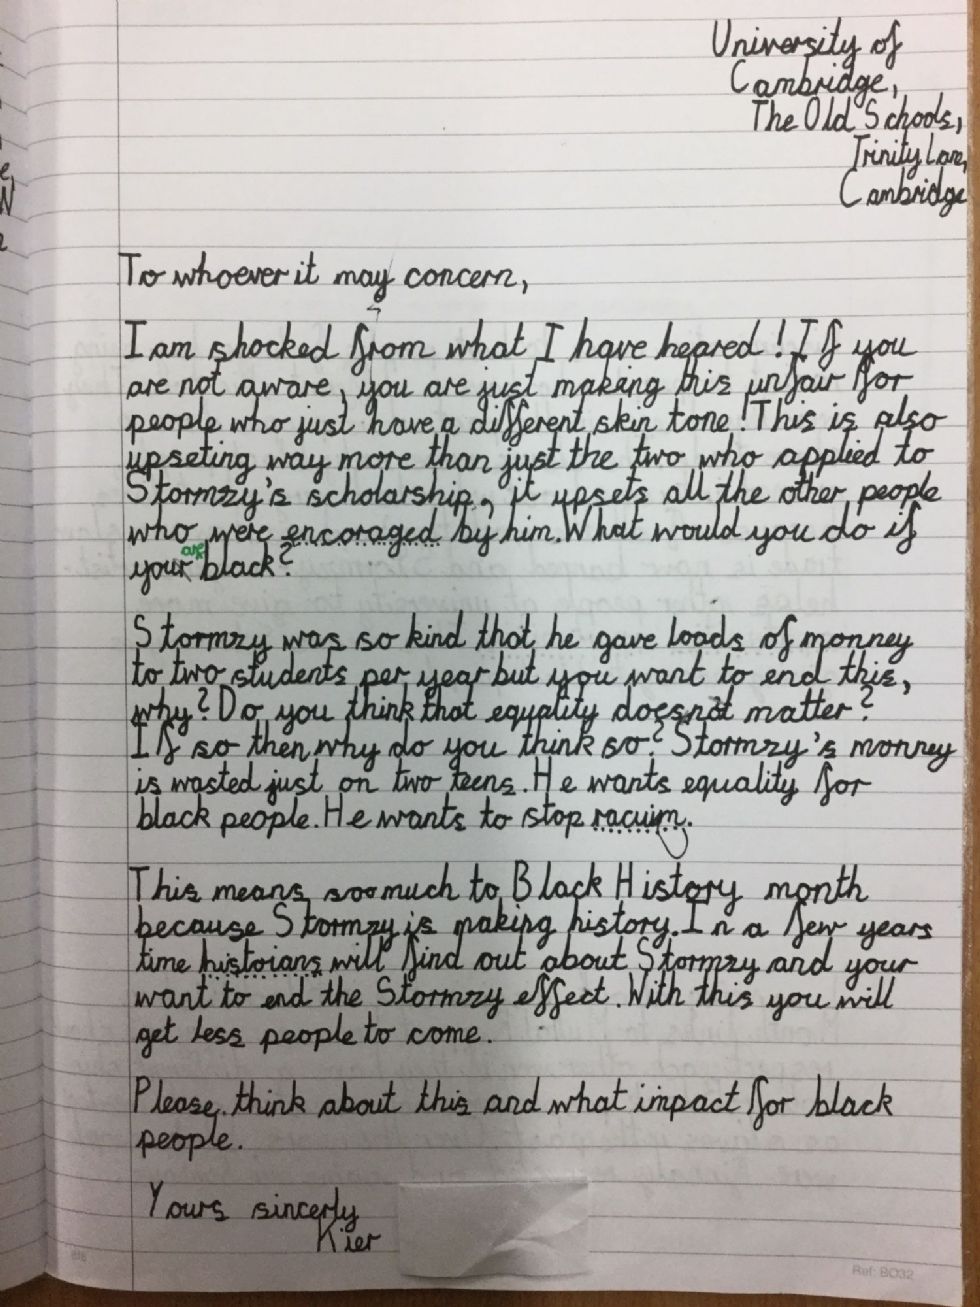 University of
Cambridge,
The Old Schools,
Trinity Lane,
Cambridge
To whoever it may concern,
I am shocked from what I have heared! If you
are not aware, you are just making this unfair for
people who just have a different skin tone! This is also
upseting way more than just the two who applied to
Stormzy's scholarship, it upsets all the other people
who were encoraged by him. What would you do if
are
your black?
Stormzy was so kind that he gave loads of monney
to two students per year but you want to end this,
why? Do you think that equality doesnot matter?
If so then why do you think so? Stormzy's monney
is wasted just on two teens. He wants equality for
black people. He wants to stop racuim.
This means soo much to Black History month
because Stormzy is making history. In a few years
time histoians will find out about Stormzy and your
want to end the Stormzy effect. With this you will
get less people to come.
Please think about this and what impact for black
people.
Yours sincerly
Kier
Ref: BO32